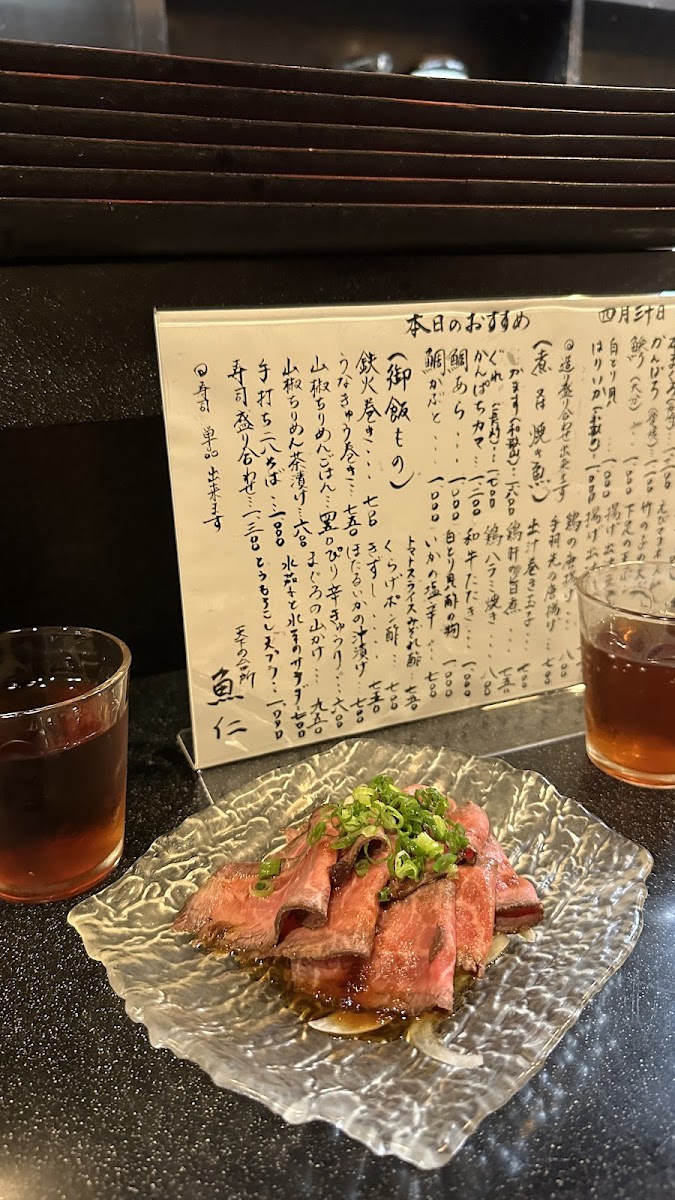 四月三十日
本日のおすすめ
白とり貝…一〇〇〇
はりいか
◎造り盛り合わせ出来ます
(煮又は焼き魚)
かます(和歌山)…
ぐれ(長崎)…
かんぱちカマ…一二〇〇
鯛あら…一〇〇〇
鯛かぶと…一〇〇〇
(御飯もの)
鉄火巻き…七〇〇
うなきゅう巻き…七五〇
山椒ちりめんごはん…
山椒ちりめん茶漬け…六〇〇
手打ち二八そば…一〇〇〇
寿司盛り合わせ…一三〇〇
◎寿司単品出来ます
鶏の唐揚げ…八
手羽元の唐揚げ…七〇〇
出汁巻き玉子…七〇〇
鶏肝の旨煮…七五〇
鶏ハラミ焼き…八〇〇
和牛たたき…一〇〇〇
白とり貝酢の物…一〇〇〇
いかの塩辛…七〇〇
トマトスライスみぞれ酢…七五〇
くらげポン酢…七〇〇
きずし…七五〇
ほたるいかの沖漬け…七〇〇
ぴり辛きゅうり…六〇〇
まぐろの山かけ…九五〇
水茄子と水菜のサラダ…七〇〇
とうもろこし天ぷら…一〇〇〇
天下の台所
魚仁